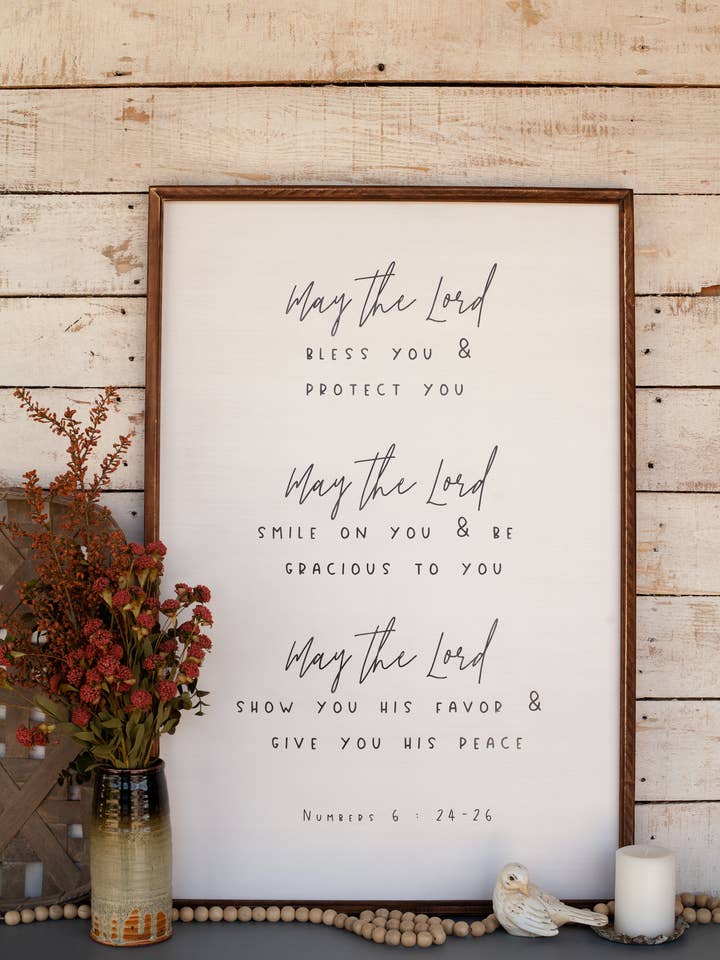 May the Lord
BLESS YOU &
PROTECT YOU
May the Lord
SMILE ON YOU & BE
GRACIOUS TO YOU
May the Lord
SHOW YOU HIS FAVOR &
GIVE YOU HIS PEACE
NUMBERS 6 : 24-26